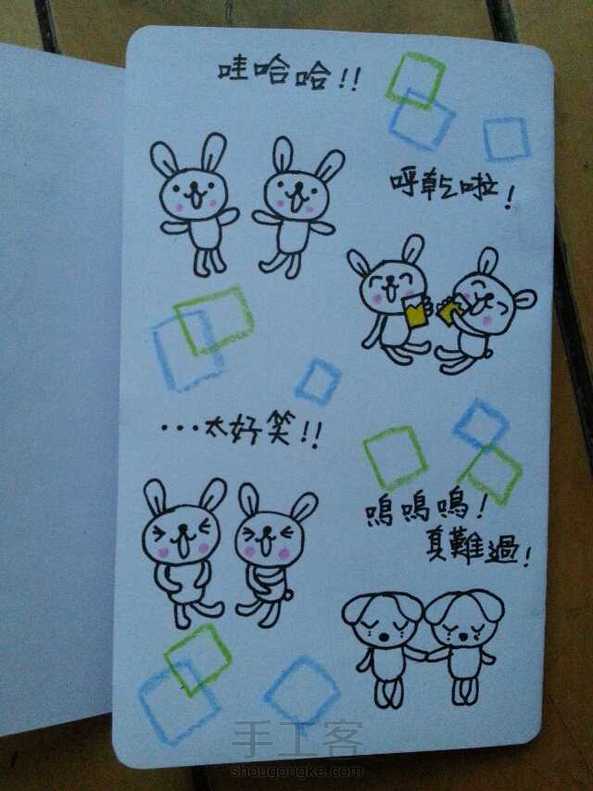 哇哈哈!!
呼乾啦!
...太好笑!!
嗚嗚嗚!
真難過!
手工客
shougongke.com